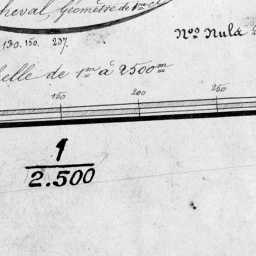 cheval, Géomètre de 1ère cl
190. 150. 237.
Nos Nuls
elle de 1m à 2500m
150 200 250
1
2.500